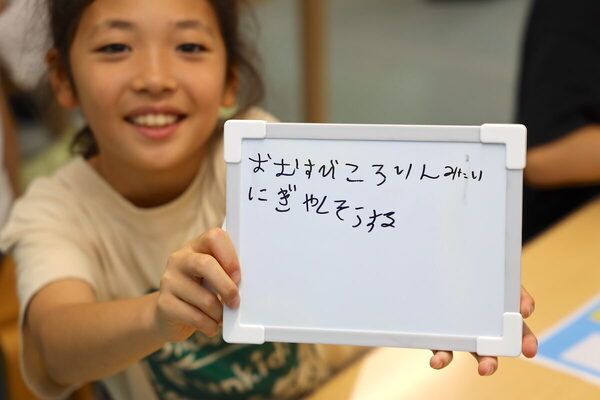 おむすびころりんみたい
にぎやくそうする